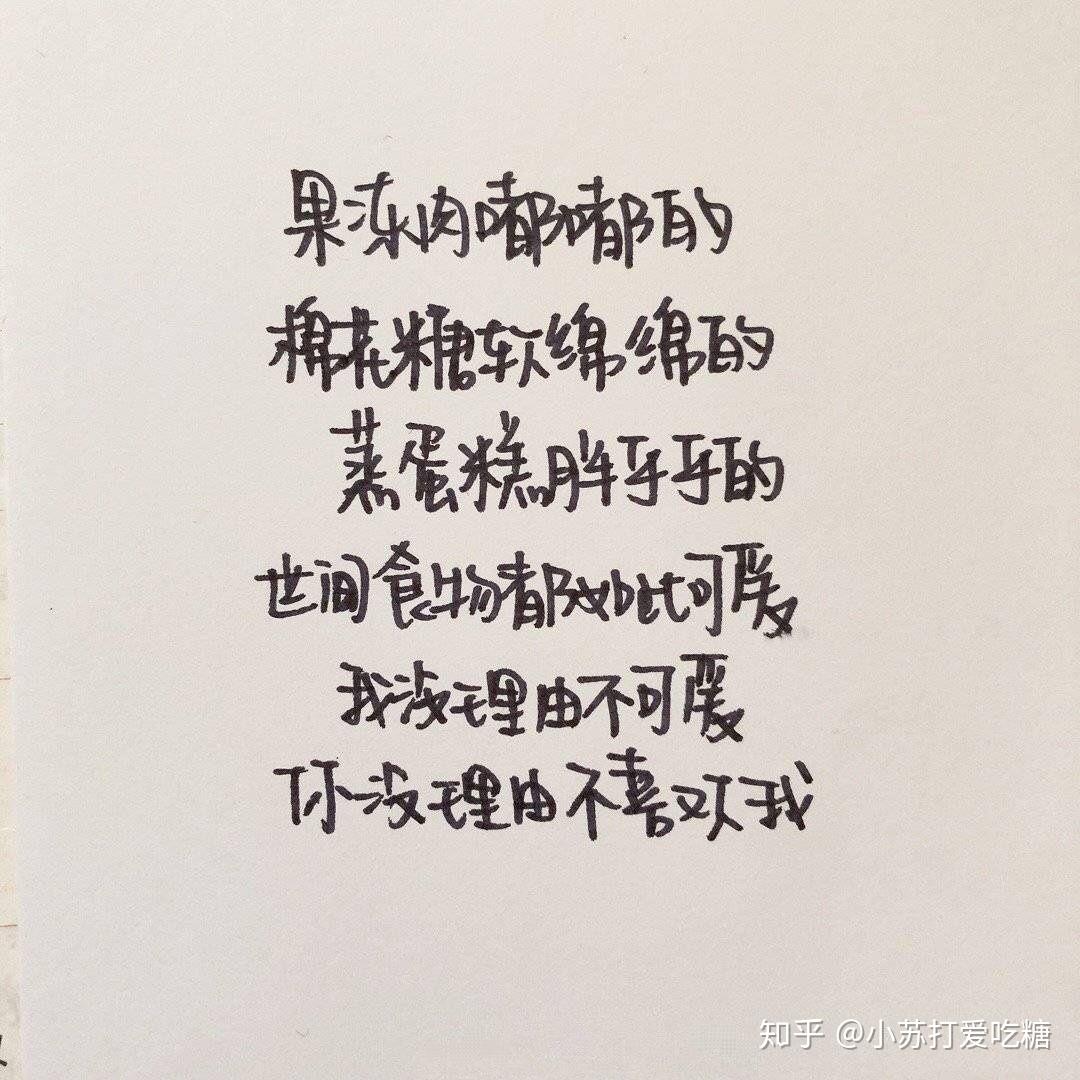 果冻肉嘟嘟的
棉花糖软绵绵的
蒸蛋糕胖乎乎的
世间食物都如此可爱
我没理由不可爱
你没理由不喜欢我
知乎 @小苏打爱吃糖